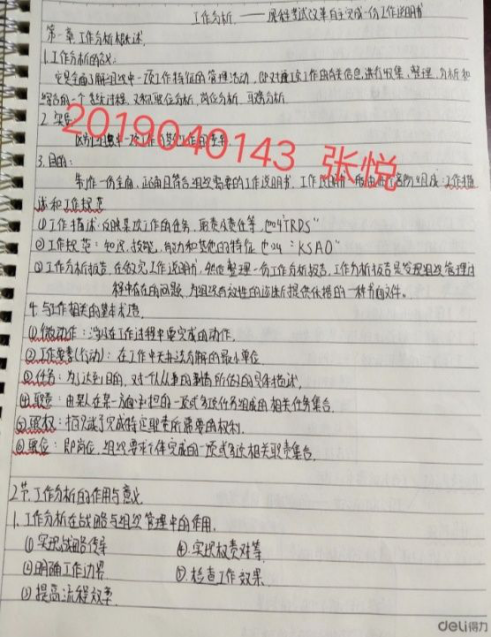 工作分析 —— 课程考试改革自主完成一份工作说明书
第一章 工作分析概述
1.工作分析的含义:
它是全面了解组织中一项工作特征的管理活动,即对该项工作的有关信息进行收集、整理、分析和
综合的一个系统过程,又称职位分析、岗位分析
2.实质
2019040143 张悦
3.目的:
制作一份全面、正确且符合组织需要的工作说明书,工作说明书一般由两个部分组成:工作描
述和工作规范
①工作描述:反映某项工作的任务、职责及责任等,也叫"TRDS"
②工作规范:知识、技能、能力和其他的特征 也叫:"KSAO"
③工作分析报告,在做完工作说明书,然后整理一份工作分析报告,工作分析报告是发现组织管理过
程中存在的问题,为组织有效性的诊断提供依据的一种书面文件。
4.与工作相关的基本术语
①微动作:涉及在工作过程中要完成的动作.
②工作要素(行动):在工作中无法再分解的最小单位
③任务:为了达到目的,对一个人从事的事情所做的具体描述.
④职责:由某人在某一方面担担的一项或多项任务组成的相关任务集合.
⑤职权:指赋予完成特定职责所需要的权利.
⑥职位:即岗位,组织要求个体完成的一项或多项相关职责集合.
2节.工作分析的作用与意义
1.工作分析在战略与组织管理中的作用.
①实现战略传导 ④.实现权责对等.
②明确工作边界 ⑤.检查工作效果.
③提高流程效率
deli得力